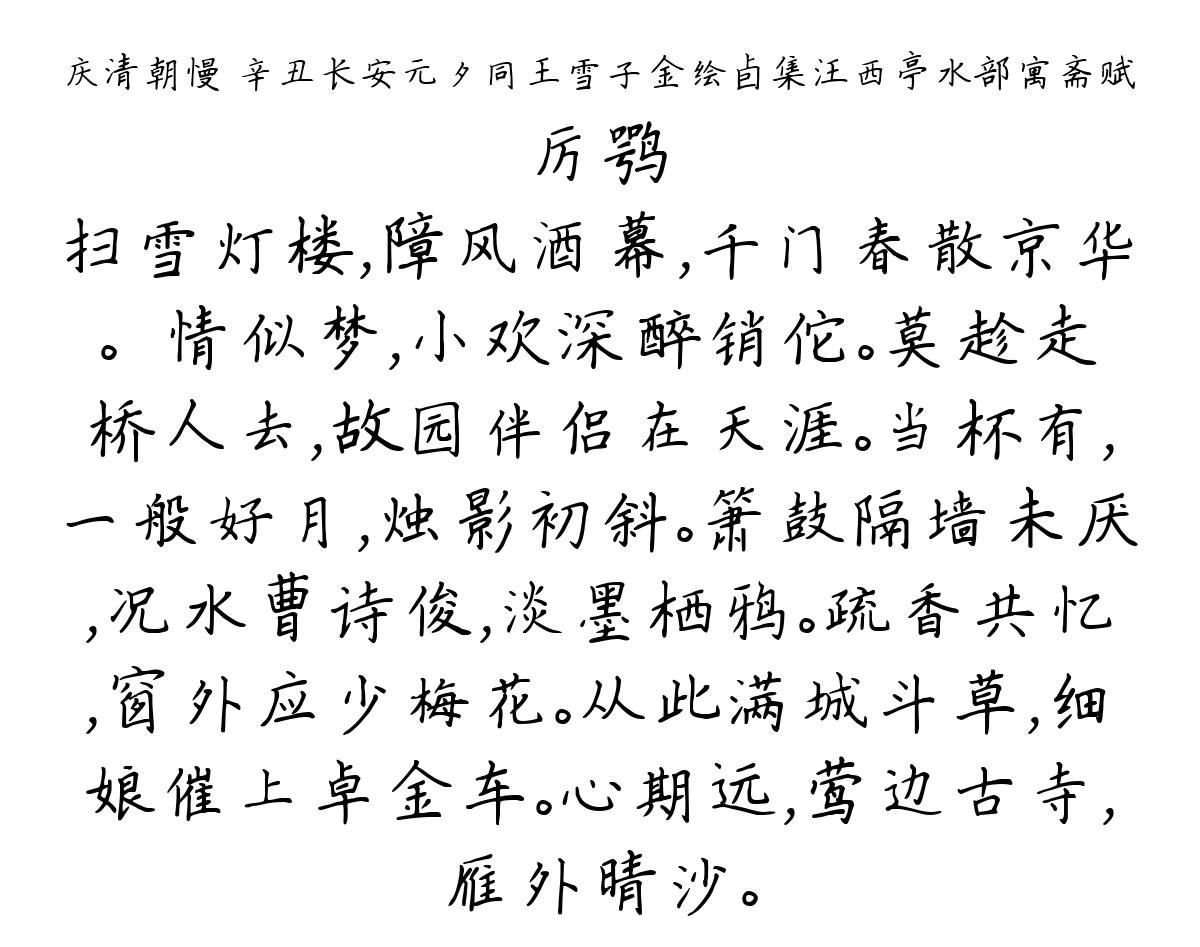 庆清朝慢 辛丑长安元夕同王雪子金绘卣集汪西亭水部寓斋赋
厉鹗
扫雪灯楼,障风酒幕,千门春散京华
。情似梦,小欢深醉销佗。莫趁走
桥人去,故园伴侣在天涯。当杯有,
一般好月,烛影初斜。箫鼓隔墙未厌
,况水曹诗俊,淡墨栖鸦。疏香共忆
,窗外应少梅花。从此满城斗草,细
娘催上卓金车。心期远,莺边古寺,
雁外晴沙。